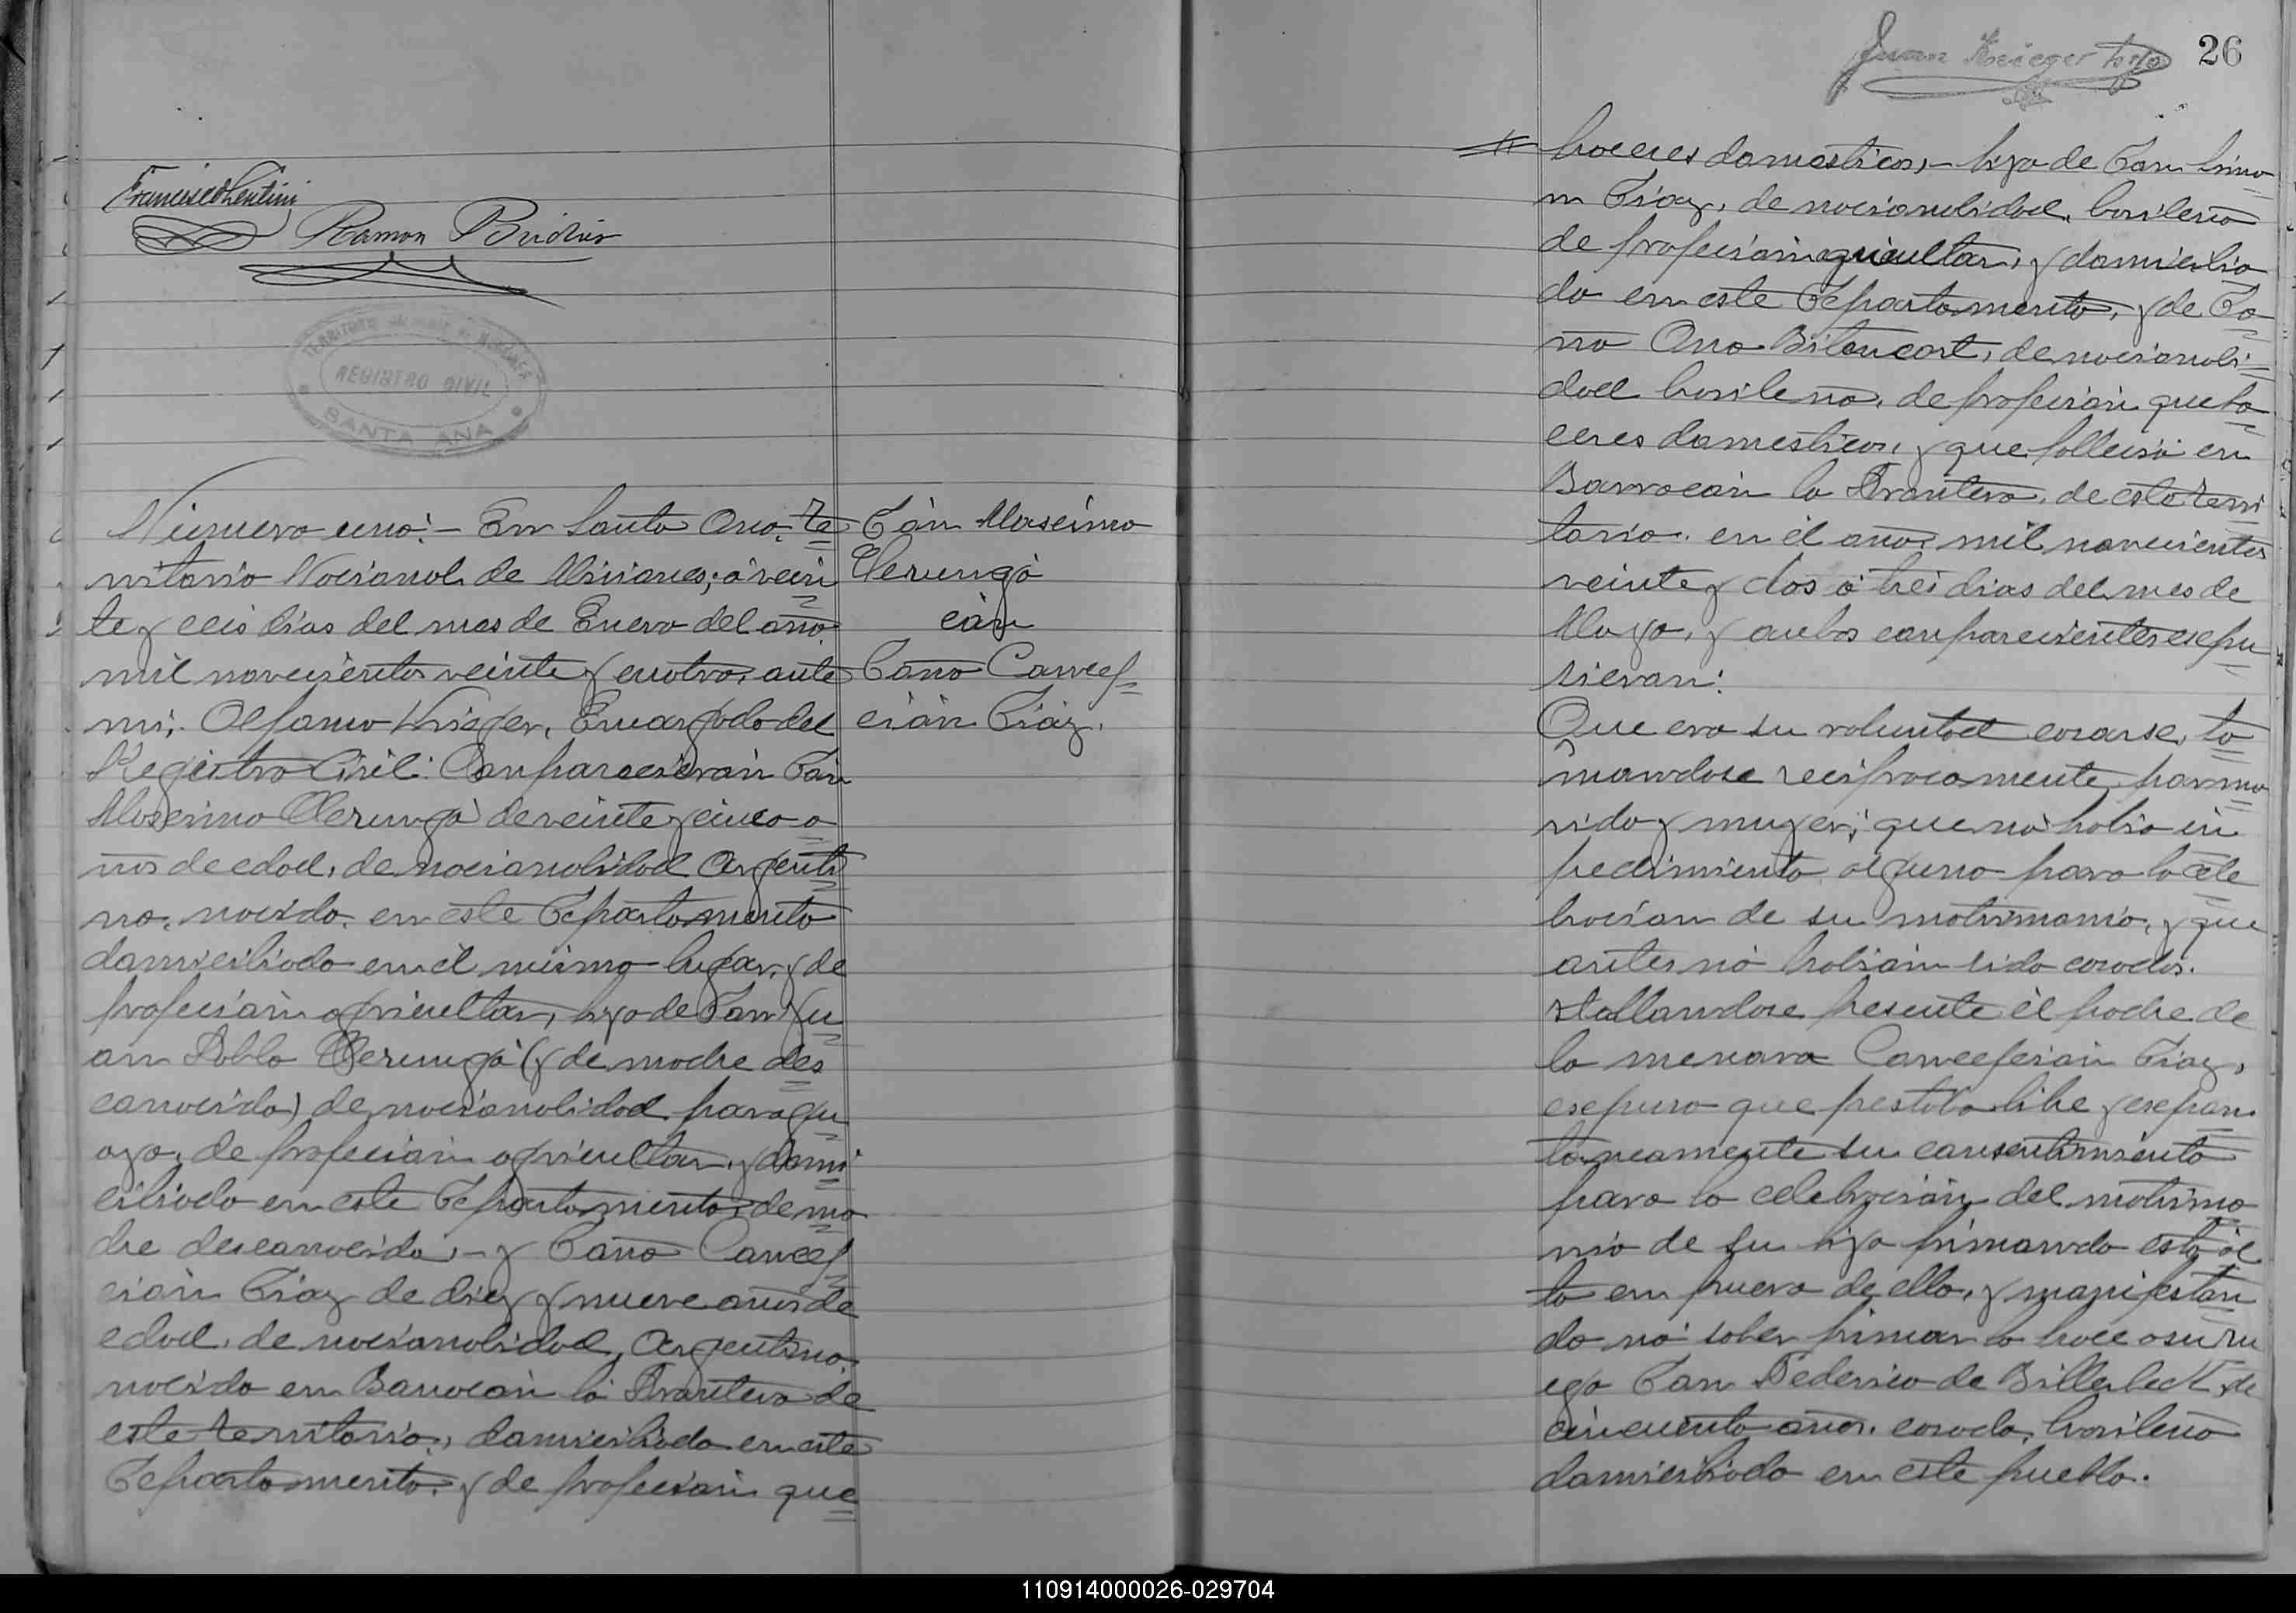 Francisco Lentini
Ramon
TERRITORIO NACIONAL DE MISIONES
REGISTRO CIVIL
SANTA ANA
Número uno: - En Santa Ana. Te=
rritorio Nacional de Misiones; á vein=
te y seis dias del mes de Enero del año
mil novecientos veinte y cuatro, ante
mi; Krieger, Encargado del
Registro Civil: Comparecierón Don
Macsimo Verungá de veinte y cinco a
ños de edad, de nacionalidad Argenti=
na, nacido en este Departamento
domiciliado en el mismo lugar, y de
profeción agricultor, hijo de Don Ju=
an Pablo Verungá (y de madre des=
conocida) de nacionalidad paragu=
aya, de profecion agricultor, y domi=
ciliado en este Departamento, de ma=
dre desconocida, - y Doña Concep=
ción Diaz de diez y nueve años de
edad, de nacionalidad, Argentina
nacida en Barracón la Frontera de
este territorio, domiciliada en este
Departamento, y de profeción que=
Dón Macsimo
Verungá
cón
Doña Concep=
ción Diaz.
Juan Krieger hijo
26
haceres domesticos, - hija de Don
Diaz, de nacionalidad, brasilera
de profeción agricultor, y domicilia
do en este Departamento, y de Do=
ña Ana Bitencort, de nacionali=
dad brasilena, de profeción queha=
ceres domesticos, y que falleció en
Barracón la Frontera, de este terri=
torio, en él año mil novecientos
veinte y dos á tres dias del mes de
Mayo, y ambos comparecientes espu=
sieron:
Que era su voluntad casarse, to=
mandose reciprocamente por ma=
rido y muger; que nó habia im
pedimiento alguno para la cele
bracion de su matrimonio, y que
antes nó habian sido casados.
Hallandose presente él padre de
la menora Concepción Diaz,
espuso que prestaba libre y espon=
taneamente su consentimiento
para la celebración del matrimo=
nio de su hija firmando esta ac=
ta en prueva de ello, y manifestan=
do nó saber firmar lo hace a su ru=
ego Don Federico de Billerbeck, de
cincuenta años, casado, brasileno
domiciliado en este pueblo.
110914000026-029704